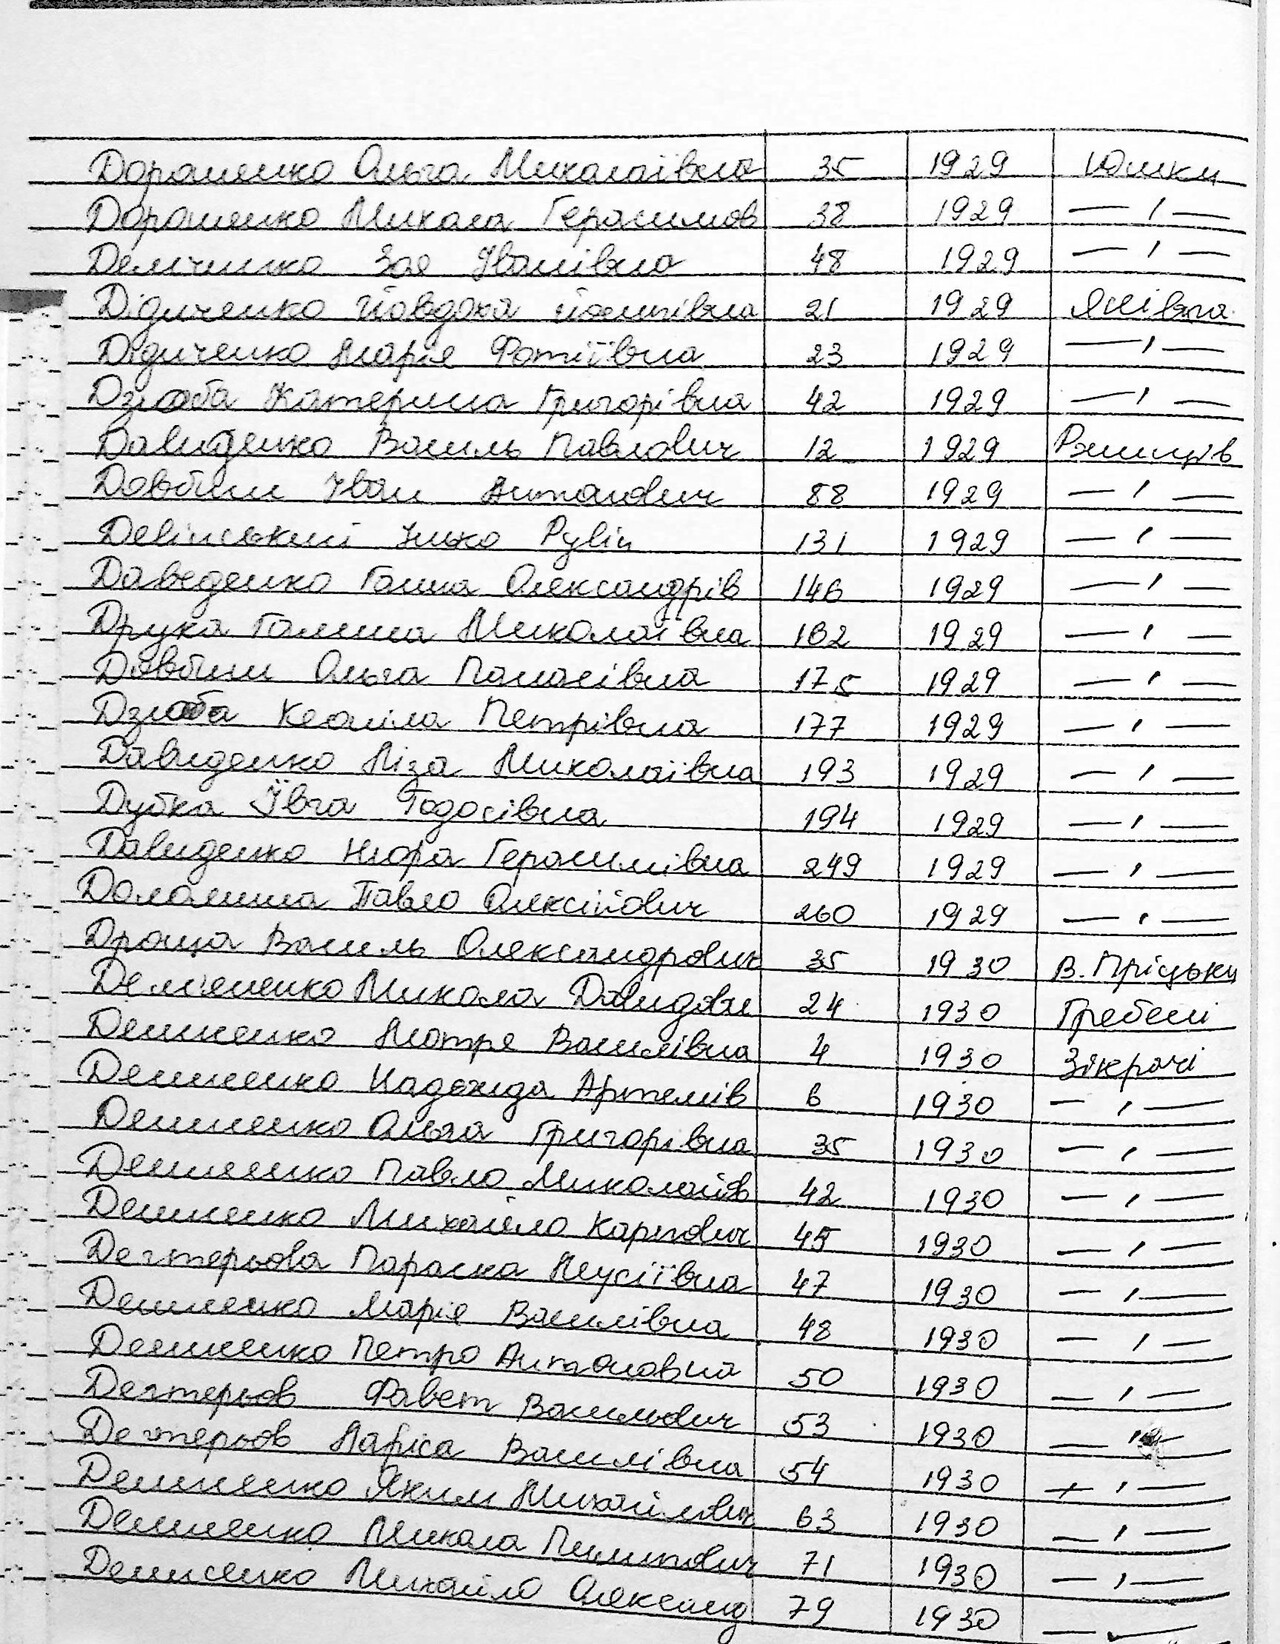 Дорошенко Ольга Миколаївна 35 1929 Юшки
Дорошенко Микола Герасимов 38 1929 — " —
Демченко Зоя Іванівна 48 1929 — " —
Дідиченко Йовдоха Йосипівна 21 1929 Янівка
Дідиченко Марія Фотіївна 23 1929 — " —
Дзюба Катерина Григорівна 42 1929 — " —
Давиденко Василь Павлович 12 1929 Ржищів
Довбиш Іван Антонович 88 1929 — " —
Делінський Рувін 131 1929 — " —
Даведенко Ганна Олександрів 146 1929 — " —
Друка Галина Миколаївна 162 1929 — " —
Довбиш Ольга Панасівна 175 1929 — " —
Дзюба Петрівна 177 1929 — " —
Давиденко Ліза Миколаївна 193 1929 — " —
Дубка Ївга Тодосівна 194 1929 — " —
Давиденко Нюра Герасимівна 249 1929 — " —
Доломина Павло Олексійович 260 1929 — " —
Дроща Василь Олександрович 35 1930 В. Пріцьки
Микола Давидови 24 1930 Гребені
Денисенко Мотря Василівна 4 1930 Зікрачі
Денисенко Надежда Артемів 6 1930 — " —
Денисенко Ольга Григорівна 35 1930 — " —
Денисенко Павло Миколайов 42 1930 — " —
Денисенко Михайло Карпович 45 1930 — " —
Дегтерьова Параска Мусіївна 47 1930 — " —
Денисенко Марія Василівна 48 1930 — " —
Денисенко Петро Антонович 50 1930 — " —
Дегтерьов Фавет Васильович 53 1930 — " —
Дегтерьов Лариса Василівна 54 1930 — " —
Денисенко Яким Михайлович 63 1930 — " —
Денисенко Микола Пилипович 71 1930 — " —
Денисенко Михайло Олександ 79 1930 — " —